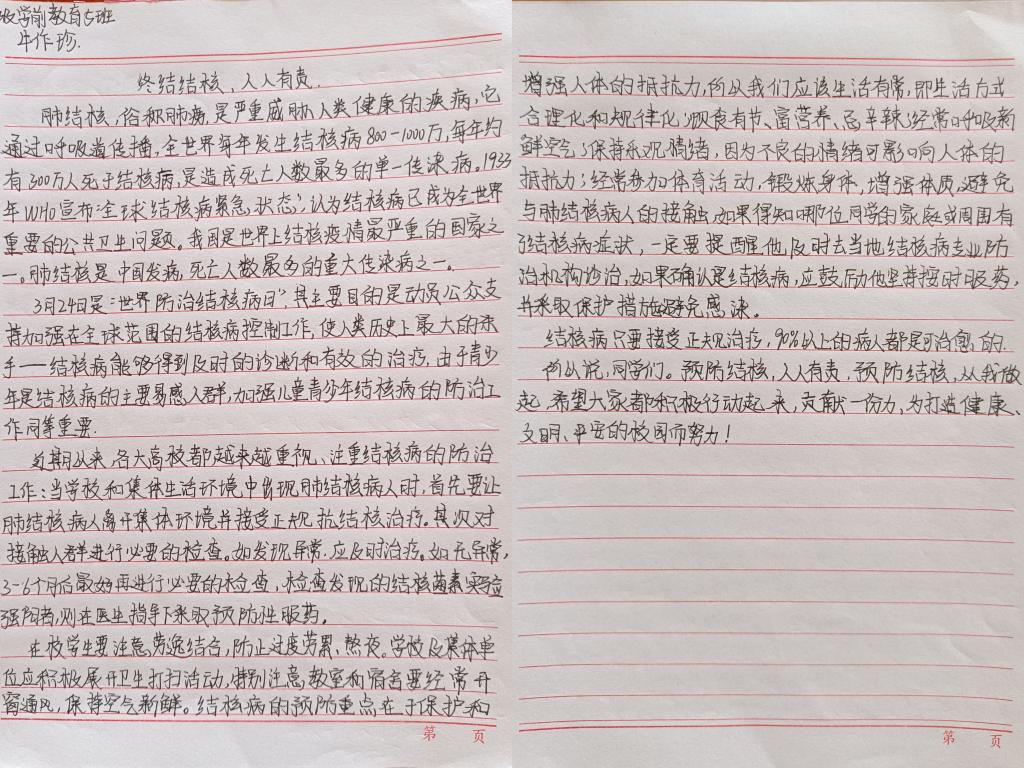 级学前教育5班
牛作珍.
终结结核,人人有责.
肺结核,俗称肺痨,是严重威胁人类健康的疾病,它
通过呼吸道传播,全世界每年发生结核病800-1000万,每年约
有300万人死于结核病,是造成死亡人数最多的单一传染病。1933
年WHO宣布“全球结核病紧急状态”,认为结核病已成为全世界
重要的公共卫生问题。我国是世界上结核疫情最严重的国家之
一。肺结核是中国发病,死亡人数最多的重大传染病之一。
3月24日是“世界防治结核病日”,其主要目的是动员公众支
持加强在全球范围的结核病控制工作,使人类历史上最大的杀
手——结核病能够得到及时的诊断和有效的治疗,由于青少
年是结核病的主要易感人群,加强儿童青少年结核病的防治工
作同等重要.
近期以来,各大高校都越来越重视、注重结核病的防治
工作:当学校和集体生活环境中出现肺结核病人时,首先要让
肺结核病人离开集体环境并接受正规抗结核治疗。其次对
接触人群进行必要的检查。如发现异常,应及时治疗。如无异常,
3-6个月后最好再进行必要的检查,检查发现的结核菌素实验
强阳者,则在医生指导下采取预防性服药。
在校学生要注意劳逸结合,防止过度劳累、熬夜。学校及集体单
位应积极展开卫生打扫活动,特别注意教室和宿舍要经常开
窗通风,保持空气新鲜。结核病的预防重点在于保护和
增强人体的抵抗力,所以我们应该生活有常,即生活方式
合理化和规律化;饮食有节、富营养、忌辛辣;经常呼吸新
鲜空气;保持乐观情绪,因为不良的情绪可影响人体的
抵抗力;经常参加体育活动,锻炼身体,增强体质,避免
与肺结核病人的接触,如果得知哪位同学的家庭或周围有
结核病症状,一定要提醒他及时去当地结核病专业防
治机构诊治,如果确认是结核病,应鼓励他坚持按时服药,
并采取保护措施避免感染。
结核病只要接受正规治疗,90%以上的病人都是可治愈的.
所以说,同学们。预防结核,人人有责,预防结核,从我做
起,希望大家都积极行动起来,贡献一份力,为打造健康、
文明、平安的校园而努力!
第 页
第 页